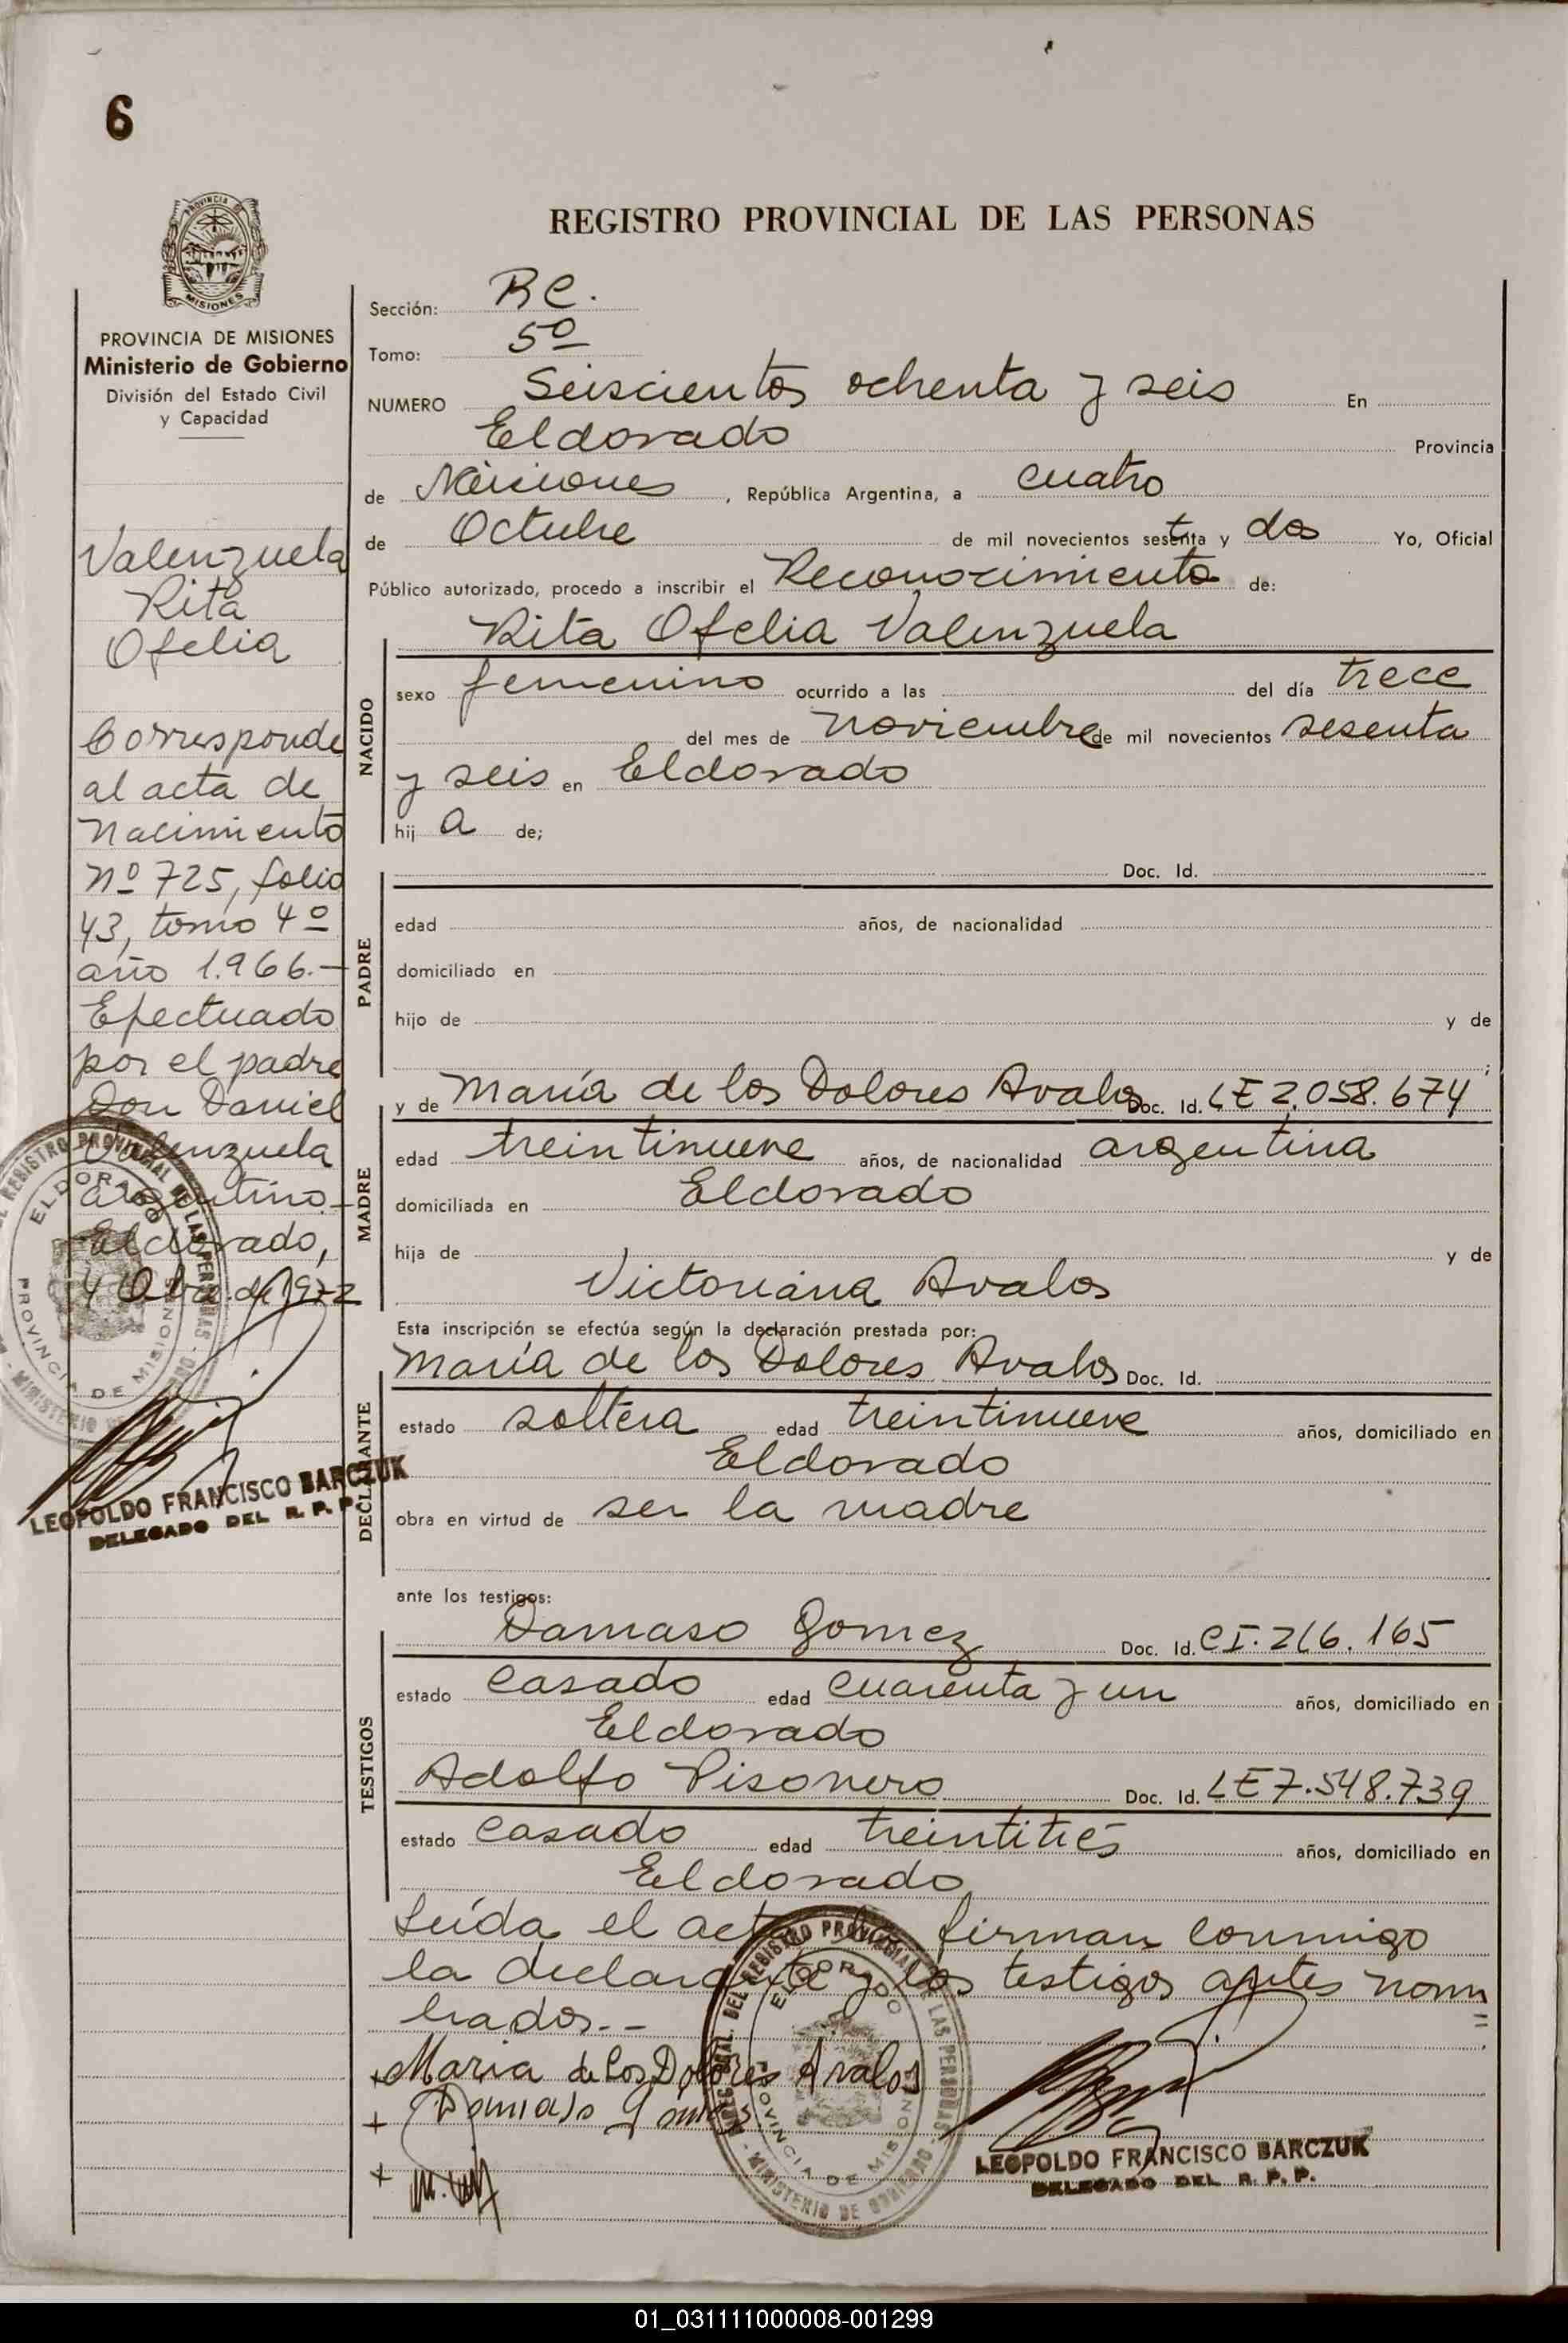 6
REGISTRO PROVINCIAL DE LAS PERSONAS
PROVINCIA DE MISIONES
Ministerio de Gobierno
División del Estado Civil
y Capacidad
Valenzuela
Rita
Ofelia
Corresponde
al acta de
Nacimiento
Nº 725, folio
43, tomo 4º
año 1.966.-
Efectuado
por el padre
Don Daniel
Valenzuela
argentino.-
Eldorado,
4 Obre. de 1972
LEOPOLDO FRANCISCO BARCZUK
DELEGADO DEL R. P. P.
Sección: RC.
Tomo: 5º
NUMERO Seiscientos ochenta y seis En
Eldorado Provincia
de Misiones, República Argentina, a cuatro
de Octubre de mil novecientos setenta y dos Yo, Oficial
Público autorizado, procedo a inscribir el Reconocimiento de:
NACIDO
Rita Ofelia Valenzuela
sexo femenino ocurrido a las del día trece
del mes de noviembre de mil novecientos sesenta
y seis en Eldorado
hij a de;
PADRE
Doc. Id.
edad años, de nacionalidad
domiciliado en
hijo de y de
;
MADRE
y de María de los Dolores Avalos Doc. Id. LE 2.058.674
edad treintinueve años, de nacionalidad argentina
domiciliada en Eldorado
hija de y de
Victoriana Avalos
Esta inscripción se efectúa según la declaración prestada por:
DECLARANTE
María de los Dolores Avalos Doc. Id.
estado soltera edad treintinueve años, domiciliado en
Eldorado
obra en virtud de ser la madre
ante los testigos:
TESTIGOS
Damaso Gomez Doc. Id. CI. 216.165
estado casado edad cuarenta y un años, domiciliado en
Eldorado
Adolfo Pisonero Doc. Id. LE 7.548.739
estado casado edad treintitrés años, domiciliado en
Eldorado
Leída el acta la firman conmigo
la declarante y los testigos antes nom
brados.--
+Maria de los Dolores Avalos
+ Damaso Gomez
+
DEL REGISTRO PROVINCIAL DE LAS PERSONAS - MINISTERIO DE GOBIERNO
ELDORADO
PROVINCIA DE MISIONES
LEOPOLDO FRANCISCO BARCZUK
DELEGADO DEL R. P. P.
01_031111000008-001299